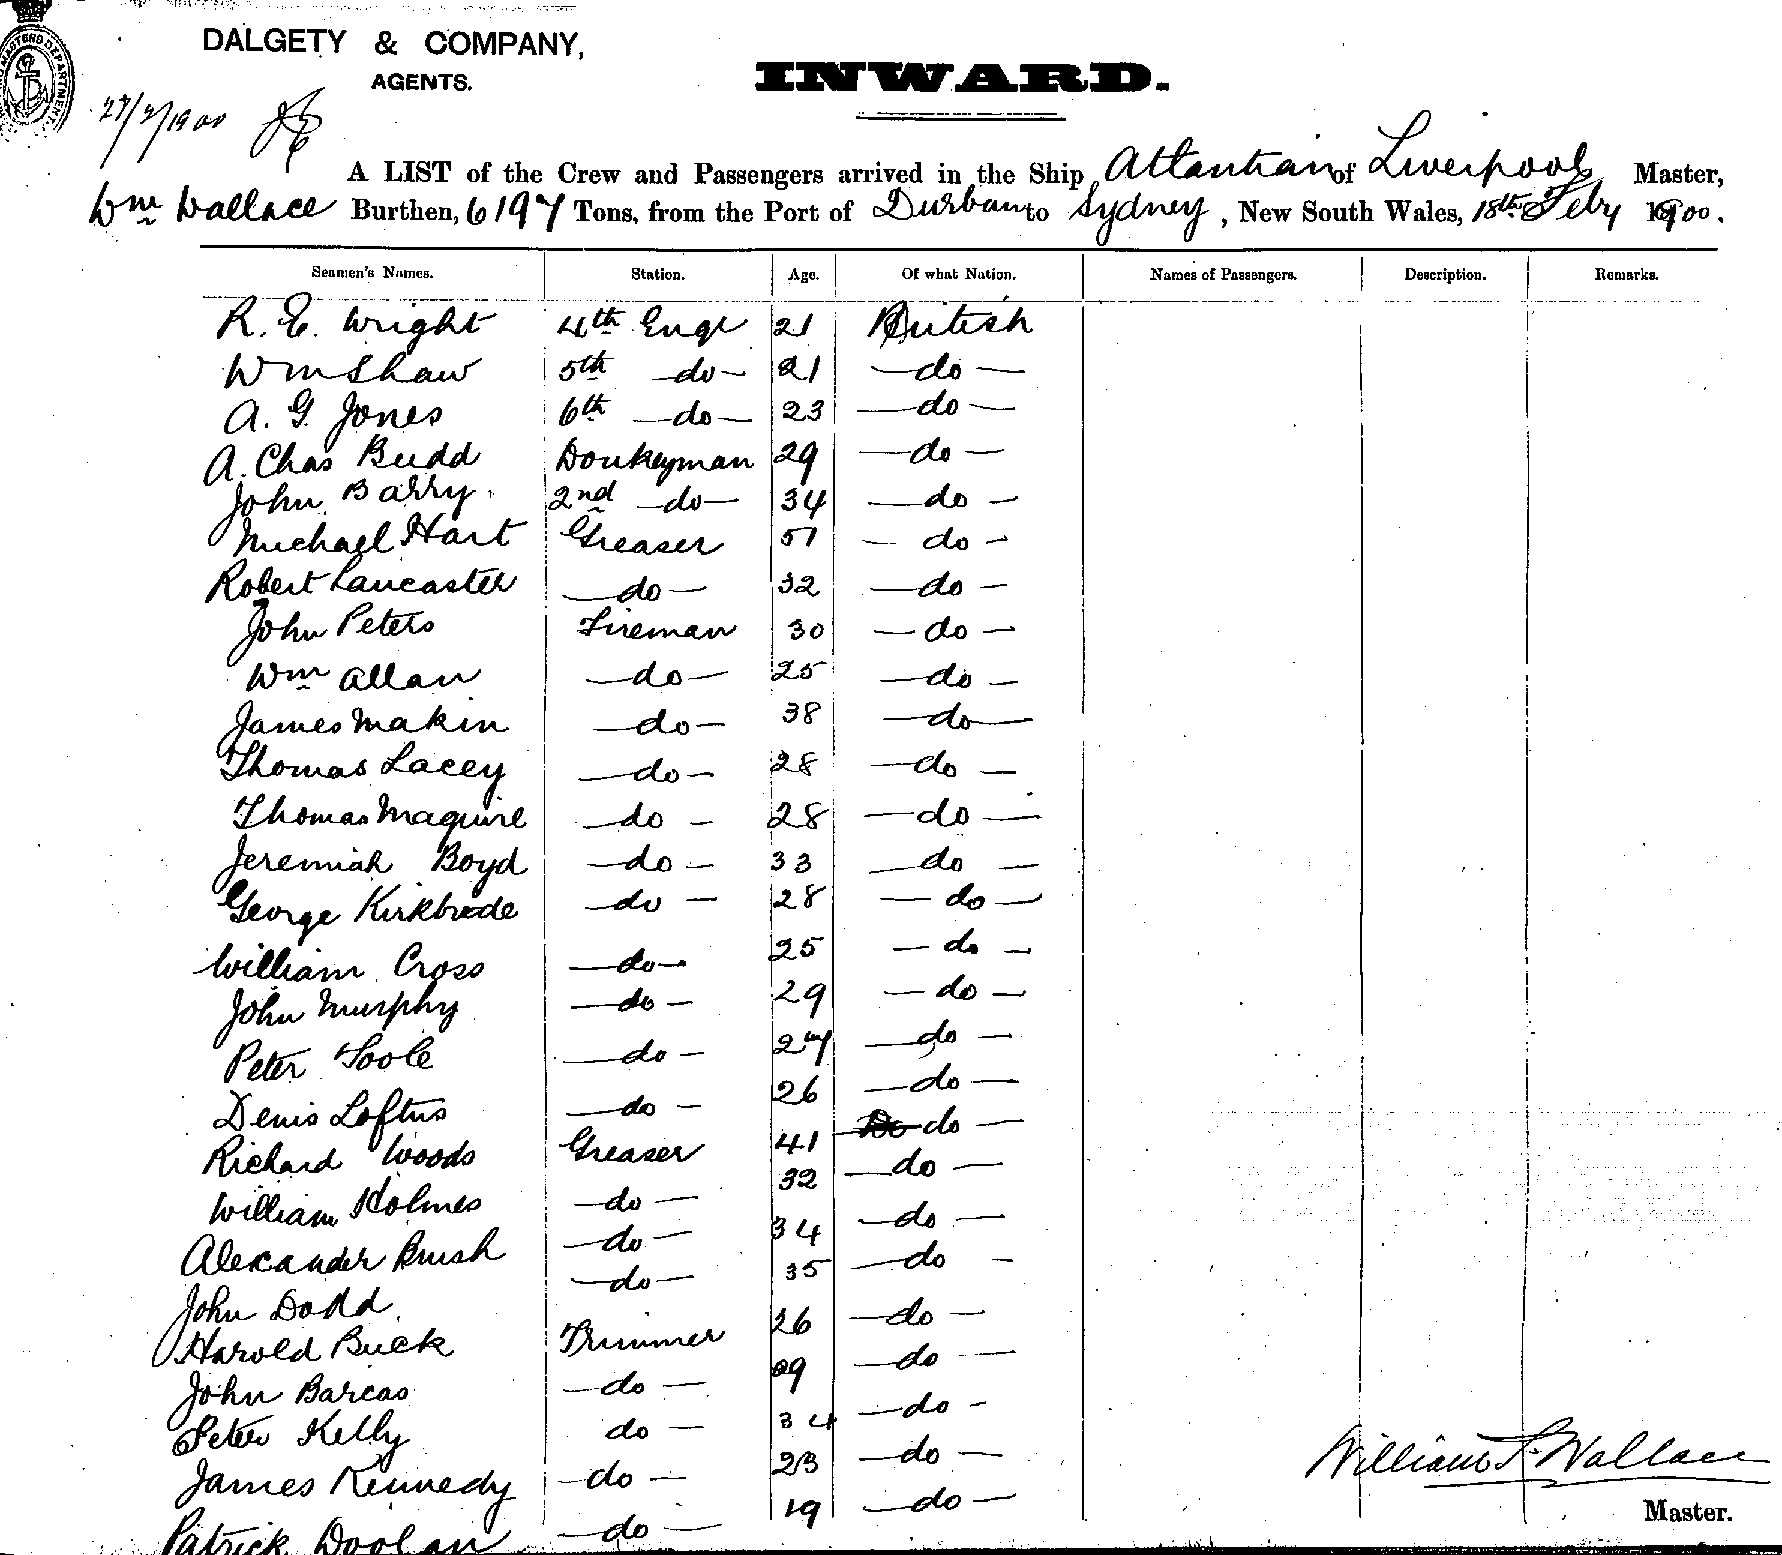 DALGETY & COMPANY,
AGENTS.
INWARD.
27/2/1900
A LIST of the Crew and Passengers arrived in the Ship Attantian of Liverpool Master,
Wm Wallace Burthen, 6197 Tons, from the Port of Durban to Sydney, New South Wales, 18th Feby 1900.
Seamen's Names. Station. Age. Of what Nation. Names of Passengers. Description. Remarks.
R. E. Wright 4th Engr 21 British
Wm Shaw 5th -do- 21 -do-
A. G. Jones 6th -do- 23 -do-
A. Chas Budd Donkeyman 29 -do-
John Barry 2nd -do- 34 -do-
Michael Hart Greaser 51 -do-
Robert Lancaster -do- 32 -do-
John Peters Fireman 30 -do-
Wm Allan -do- 25 -do-
James Makin -do- 38 -do-
Thomas Lacey -do- 28 -do-
Thomas Maguire -do- 28 -do-
Jeremiah Boyd -do- 33 -do-
George Kirkbride -do- 28 -do-
William Cross -do- 25 -do-
John Murphy -do- 29 -do-
Peter Toole -do- 27 -do-
Denis Loftus -do- 26 -do-
Richard Woods Greaser 41 Do do-
William Holmes -do- 32 -do-
Alexander Brush -do- 34 -do-
John Dodd -do- 35 -do-
Harold Buck Trimmer 26 -do-
John Barcas -do- 29 -do-
Peter Kelly do- 34 -do-
James Kennedy -do- 23 -do-
Patrick Doolan -do- 19 -do-
William S. Wallace
Master.